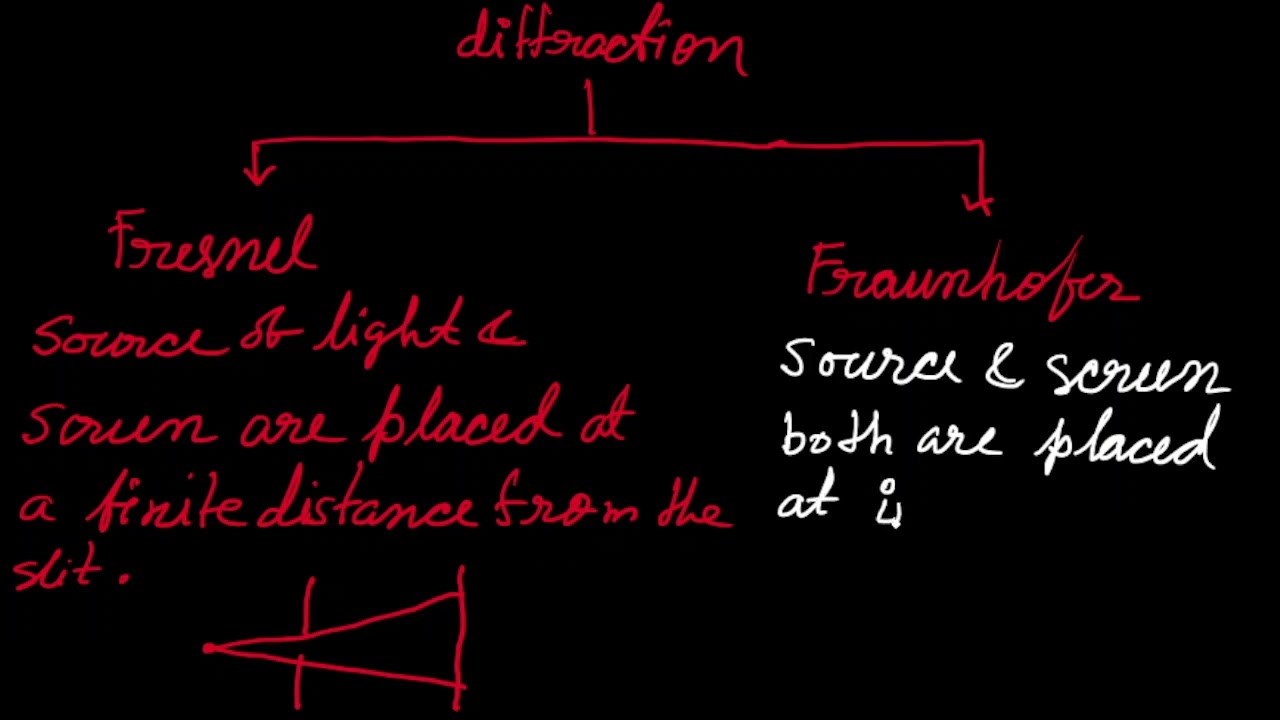 diffraction
Fresnel
Source of light &
screen are placed at
a finite distance from the
slit.
Fraunhofer
Source & screen
both are placed
at